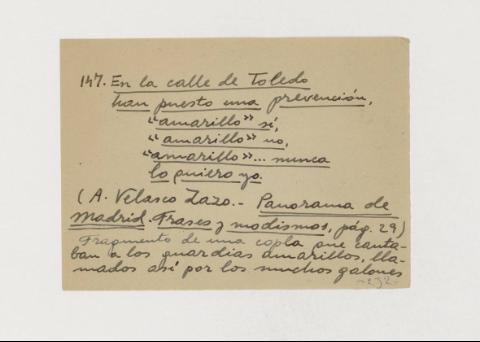 147. En la calle de Toledo
han puesto una prevención,
"amarillo" sí,
"amarillo" no,
"amarillo"... nunca
lo quiero yo.
(A. Velasco Zazo.- Panorama de
Madrid. Frases y modismos, pág. 29)
Fragmento de una copla que canta-
ban a los guardias amarillos, lla-
mados así por los muchos galones
-232-